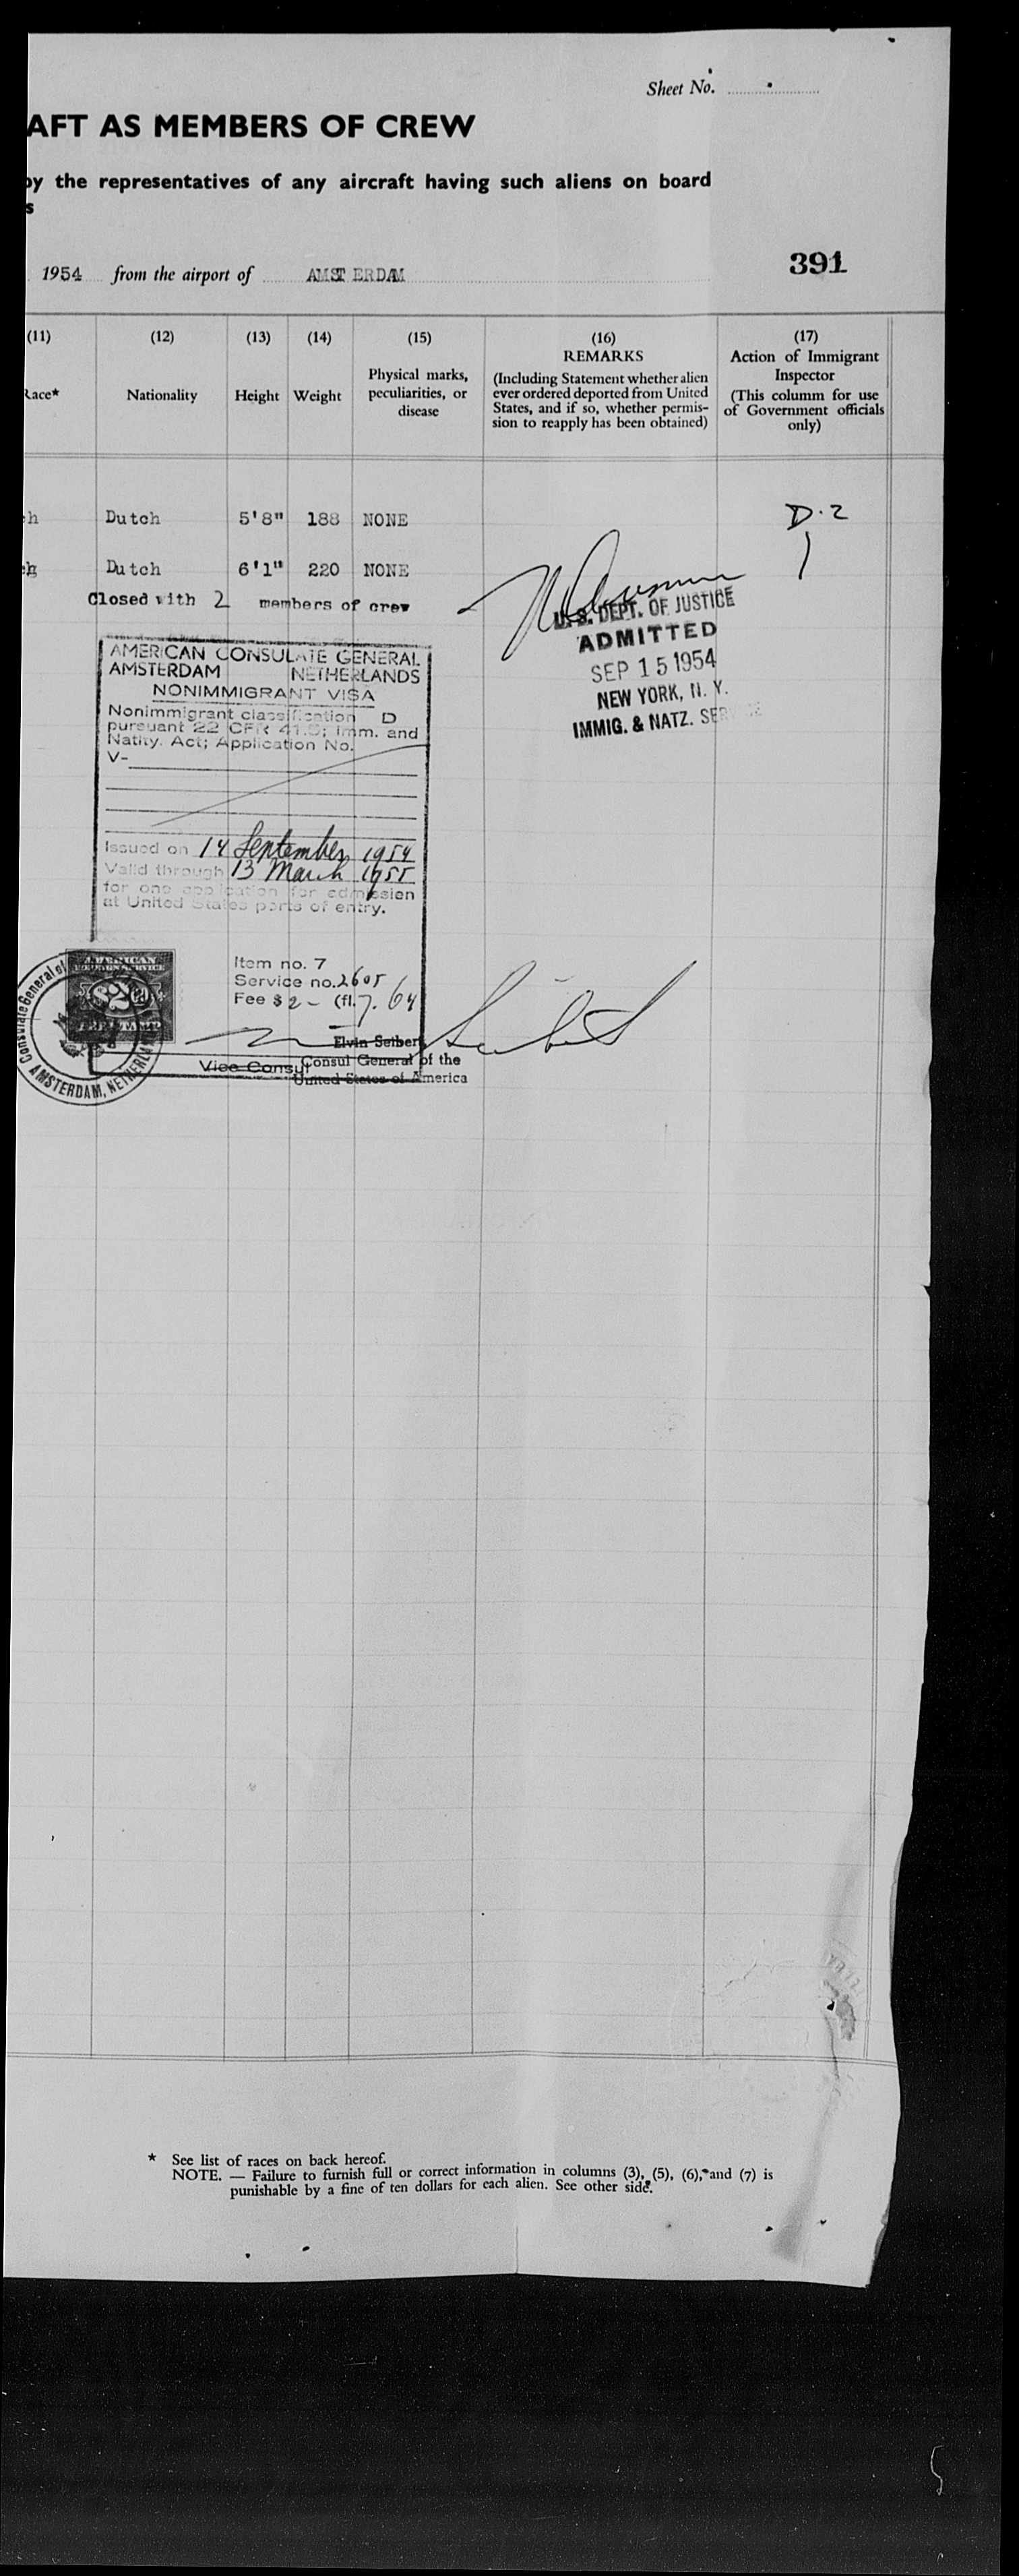 Sheet No.
AFT AS MEMBERS OF CREW
by the representatives of any aircraft having such aliens on board
s
1954 from the airport of AMSTERDAM
391
(11) (12) (13) (14) (15) (16) (17)
Race* Nationality Height Weight Physical marks, peculiarities, or disease
REMARKS
(Including Statement whether alien
ever ordered deported from United
States, and if so, whether permis-
sion to reapply has been obtained)
Action of Immigrant
Inspector
(This columm for use
of Government officials
only)
h Dutch 5'8" 188 NONE D.2
h Dutch 6'1" 220 NONE
Closed with 2 members of crew
U.S. DEPT. OF JUSTICE
ADMITTED
SEP 15 1954
NEW YORK, N. Y.
IMMIG. & NATZ. SERVICE
AMERICAN CONSULATE GENERAL
AMSTERDAM NETHERLANDS
NONIMMIGRANT VISA
Nonimmigrant classification D
pursuant 22 CFR 41.5; Imm. and
Natlty. Act; Application No.
V-
Issued on 14 September 1954
Valid through 13 March 1955
for one application for admission
at United States ports of entry.
AMERICAN
FOREIGN SERVICE
$2
FEE STAMP
Consulate General of
AMSTERDAM, NETHERLA
Item no. 7
Service no. 2605
Fee $ 2- (fl. 7.64
Elvin Seibert
Vice Consul
Consul General of the
United States of America
* See list of races on back hereof.
NOTE. — Failure to furnish full or correct information in columns (3), (5), (6), and (7) is
punishable by a fine of ten dollars for each alien. See other side.